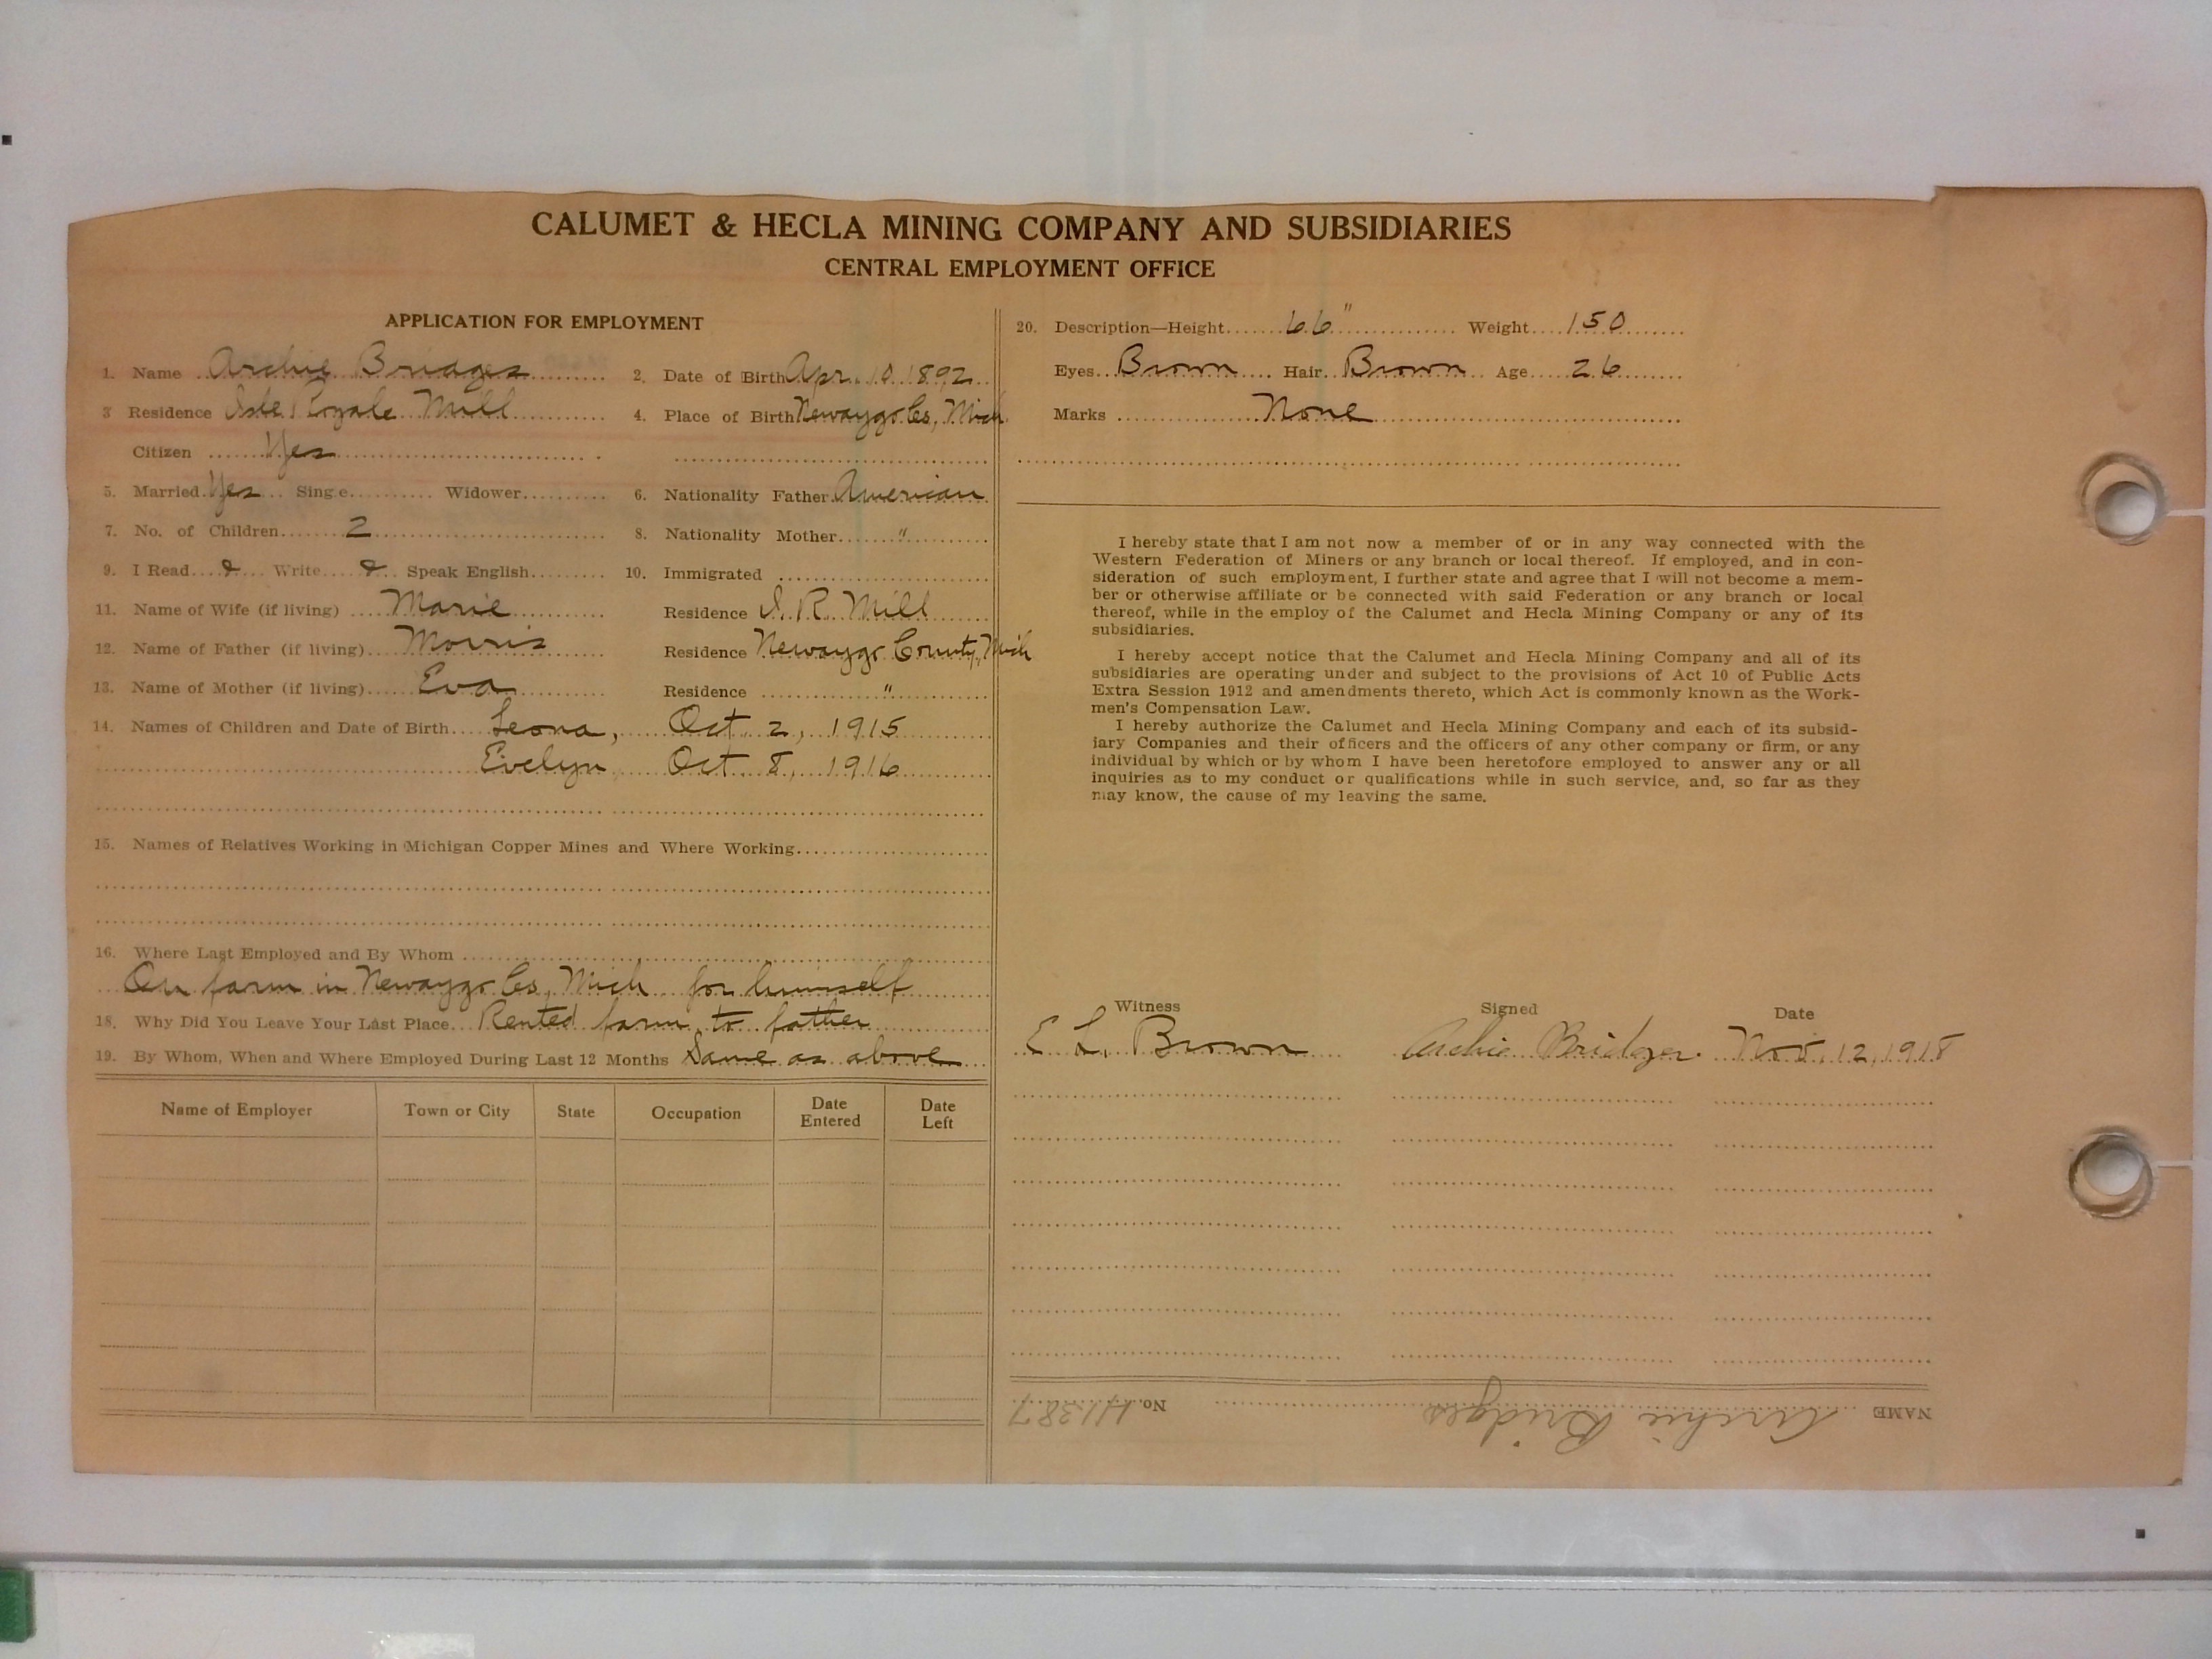 CALUMET & HECLA MINING COMPANY AND SUBSIDIARIES
CENTRAL EMPLOYMENT OFFICE
APPLICATION FOR EMPLOYMENT
1. Name Archie Bridges 2. Date of Birth Apr. 10 1892
3 Residence Isle Royale Mill 4. Place of Birth Newaygo Co, Mich
Citizen Yes
5. Married Yes Single Widower 6. Nationality Father American
7. No. of Children 2 8. Nationality Mother "
9. I Read & Write & Speak English 10. Immigrated
11. Name of Wife (if living) Marie Residence I. R. Mill
12. Name of Father (if living) Morris Residence Newaygo County, Mich
13. Name of Mother (if living) Eva Residence "
14. Names of Children and Date of Birth Leona, Oct 2, 1915
Evelyn Oct 8, 1916
15. Names of Relatives Working in Michigan Copper Mines and Where Working
16. Where Last Employed and By Whom
On farm in Newaygo Co, Mich for himself
18. Why Did You Leave Your Last Place Rented farm to father
19. By Whom, When and Where Employed During Last 12 Months Same as above
Name of Employer Town or City State Occupation Date Entered Date Left
20. Description—Height 66" Weight 150
Eyes Brown Hair Brown Age 26
Marks None
I hereby state that I am not now a member of or in any way connected with the
Western Federation of Miners or any branch or local thereof. If employed, and in con-
sideration of such employment, I further state and agree that I will not become a mem-
ber or otherwise affiliate or be connected with said Federation or any branch or local
thereof, while in the employ of the Calumet and Hecla Mining Company or any of its
subsidiaries.
I hereby accept notice that the Calumet and Hecla Mining Company and all of its
subsidiaries are operating under and subject to the provisions of Act 10 of Public Acts
Extra Session 1912 and amendments thereto, which Act is commonly known as the Work-
men's Compensation Law.
I hereby authorize the Calumet and Hecla Mining Company and each of its subsid-
iary Companies and their officers and the officers of any other company or firm, or any
individual by which or by whom I have been heretofore employed to answer any or all
inquiries as to my conduct or qualifications while in such service, and, so far as they
may know, the cause of my leaving the same.
Witness Signed Date
E L. Brown Archie Bridges Nov. 12, 1918
NAME Archie Bridges No. H1387